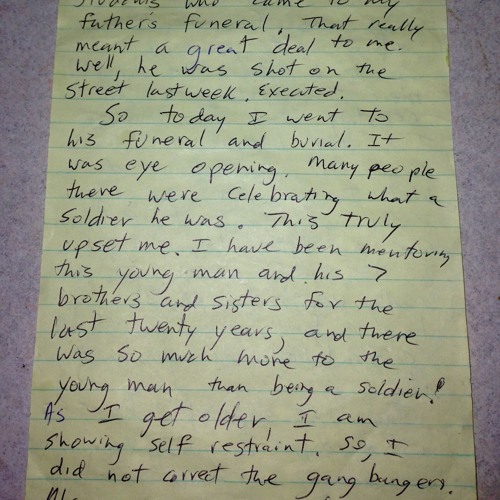 students who came to my
father's funeral. That really
meant a great deal to me.
Well, he was shot on the
street last week. Executed.
So today I went to
his funeral and burial. It
was eye opening. Many people
there were celebrating what a
soldier he was. This truly
upset me. I have been mentoring
this young man and his 7
brothers and sisters for the
last twenty years, and there
was so much more to the
young man than being a soldier!
As I get older, I am
showing self restraint. So, I
did not correct the gang bangers.